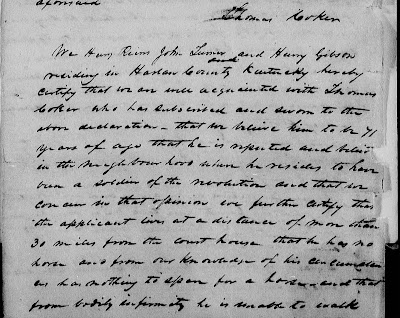 aforesaid
Thomas Coker
We Harry Rums John Turner and and Harry Gibson
residing in Harlan County Kentucky hereby
certify that we are well acquainted with Thomas
Coker who has subscribed and sworn to the
above declaration - that we believe him to be 71
years of age that he is reputed and believ
in the neighbourhood where he resides to have
been a soldier of the revolution and that we
concur in that opinion we further certify that
the applicant lives at a distance of more than
30 miles from the court house that he has no
horse and from our knowledge of his circumstan
ces has nothing to spare for a horse - and that
from bodily infirmity he is unable to walk